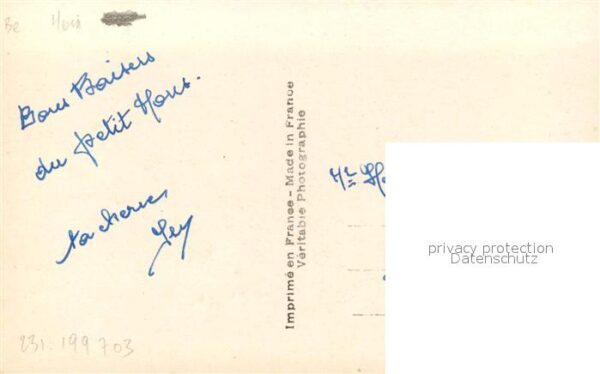 Bons Baisers
du petit Hous.
ta cherie
Imprimé en France - Made in France
Véritable Photographie
privacy protection
Datenschutz
231.199703